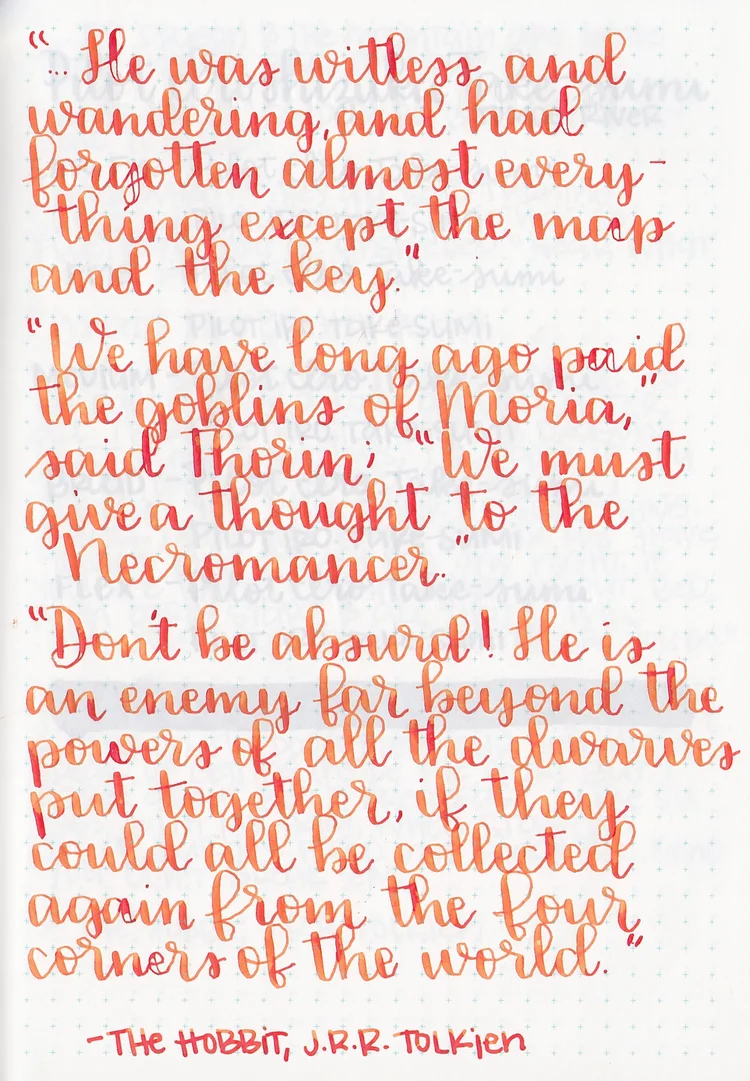 "... He was witless and
wandering, and had
forgotten almost every-
thing except the map
and the key."
"We have long ago paid
the goblins of Moria,"
said Thorin; "We must
give a thought to the
Necromancer."
"Don't be absurd! He is
an enemy far beyond the
powers of all the dwarves
put together, if they
could all be collected
again from the four
corners of the world."
-THE HOBBIT, J.R.R. TOLKIEN